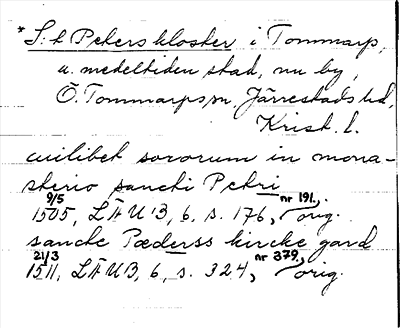 *S:t Peters kloster i Tommarp,
u. medeltiden stad, nu by,
Ö. Tommarps sn, Järrestads hd,
Krist. l.
cuilibet sororum in mona-
sterio sancti Petri
9/5 1505, LÄUB, 6, s. 176, nr 191, orig.
sancte Pæderss kircke gard
21/3 1511, LÄUB, 6, s. 324, nr 379, orig.